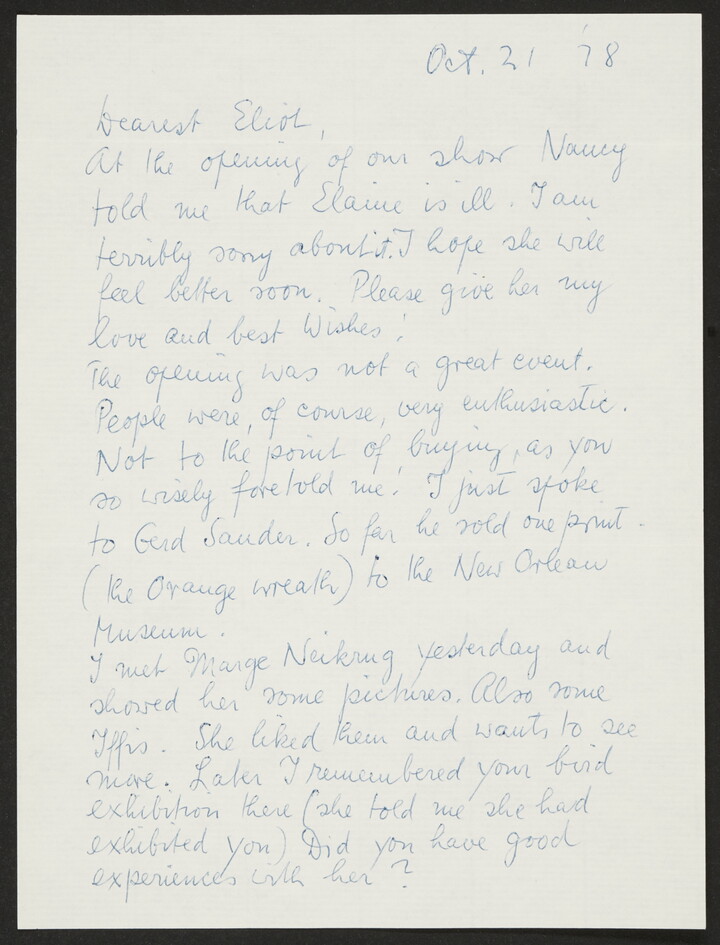 Oct. 21 '78
Dearest Eliot,
At the opening of our show Nancy
told me that Elaine is ill. I am
terribly sorry about it. I hope she will
feel better soon. Please give her my
love and best Wishes!
The opening was not a great event.
People were, of course, very enthusiastic.
Not to the point of buying, as you
so wisely foretold me! I just spoke
to Gerd Sander. So far he sold one print
(the Orange wreath) to the New Orlean
Museum.
I met Marge Neikrug yesterday and
showed her some pictures. Also some
Iffis. She liked them and wants to see
more. Later I remembered your bird
exhibition there (she told me she had
exhibited you) Did you have good
experiences with her?